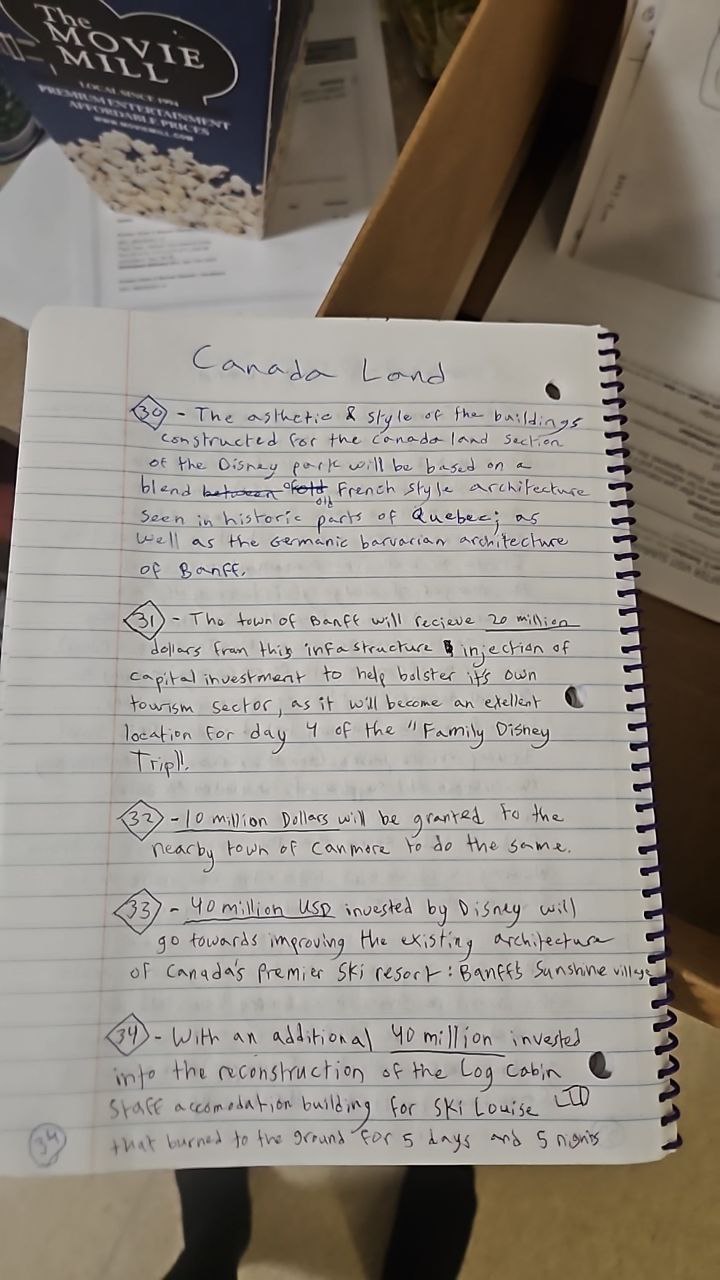 The
MOVIE
MILL
LOCAL SINCE 1994
PREMIUM ENTERTAINMENT
AFFORDABLE PRICES
WWW.MOVIEMILL.COM
Canada Land
30 - The asthetic & style of the buildings
constructed for the Canada land section
of the Disney park will be based on a
blend between of old French style architecture
old
seen in historic parts of Quebec; as
well as the Germanic barvarian architecture
of Banff.
31 - The town of Banff will recieve 20 million
dollars from this infastructure injection of
capital investment to help bolster it's own
tourism sector, as it will become an exellent
location for day 4 of the "Family Disney
Trip".
32 - 10 million Dollars will be granted to the
nearby town of Canmore to do the same.
33 - 40 million USD invested by Disney will
go towards improving the existing architecture
of Canada's Premier Ski resort: Banff's Sunshine village
34 - With an additional 40 million invested
into the reconstruction of the Log Cabin
Staff accomodation building for Ski Louise LTD
that burned to the ground for 5 days and 5 nights
34